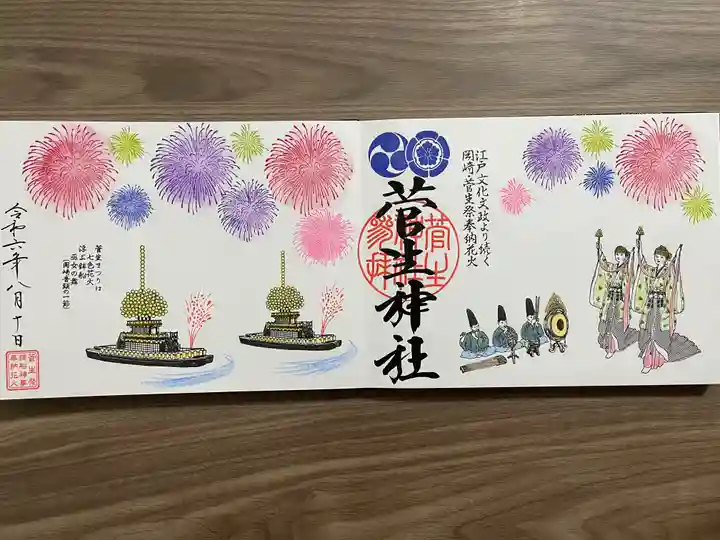 江戸文化文政より続く
岡崎・菅生祭奉納花火
菅生神社
菅生まつりは
七色花火
浮ぶ鉾船
巫女の舞
(岡崎音頭の一節)
令和六年八月十日
菅生祭
鉾船神事
奉納花火